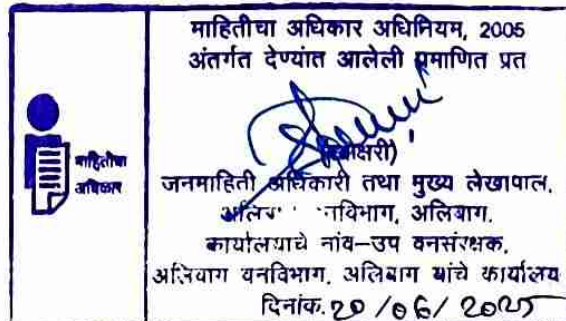 माहितीचा अधिकार अधिनियम, 2005
अंतर्गत देण्यांत आलेली प्रमाणित प्रत
माहितीचा
अधिकार
जनमाहिती अधिकारी तथा मुख्य लेखापाल,
वनविभाग, अलिबाग.
कार्यालयाचे नांव-उप वनसंरक्षक,
अलिबाग वनविभाग, अलिबाग यांचे कार्यालय
दिनांक. 20/06/2025